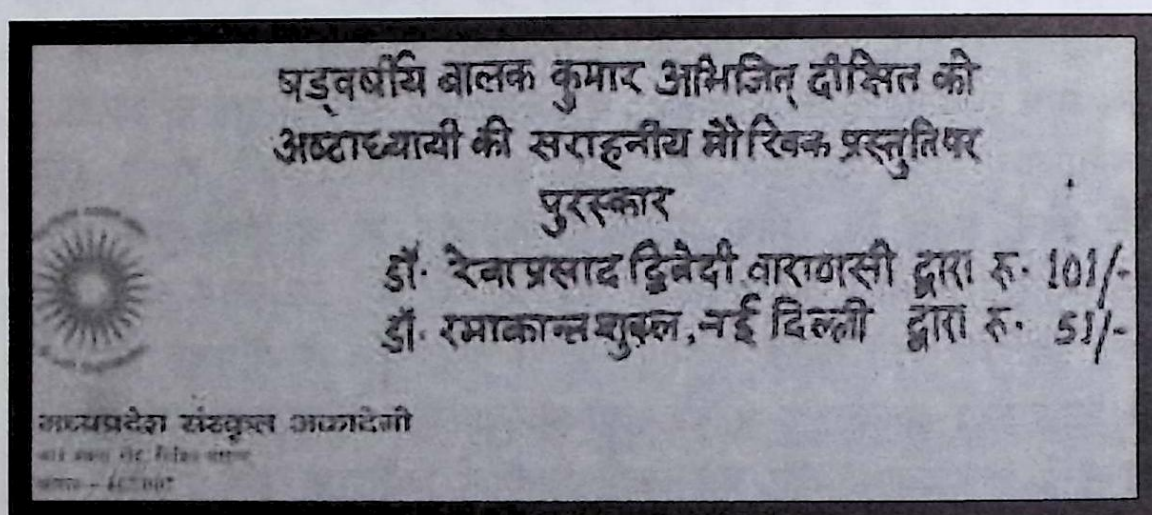 षड्वर्षीय बालक कुमार अभिजित् दीक्षित को
अष्टाध्यायी की सराहनीय मौखिक प्रस्तुति पर
पुरस्कार
डॉ. रेवाप्रसाद द्विवेदी वाराणसी द्वारा रू. 101/-
डॉ. रमाकान्त शुक्ल, नई दिल्ली द्वारा रू. 51/-
मध्यप्रदेश संस्कृत अकादेमी